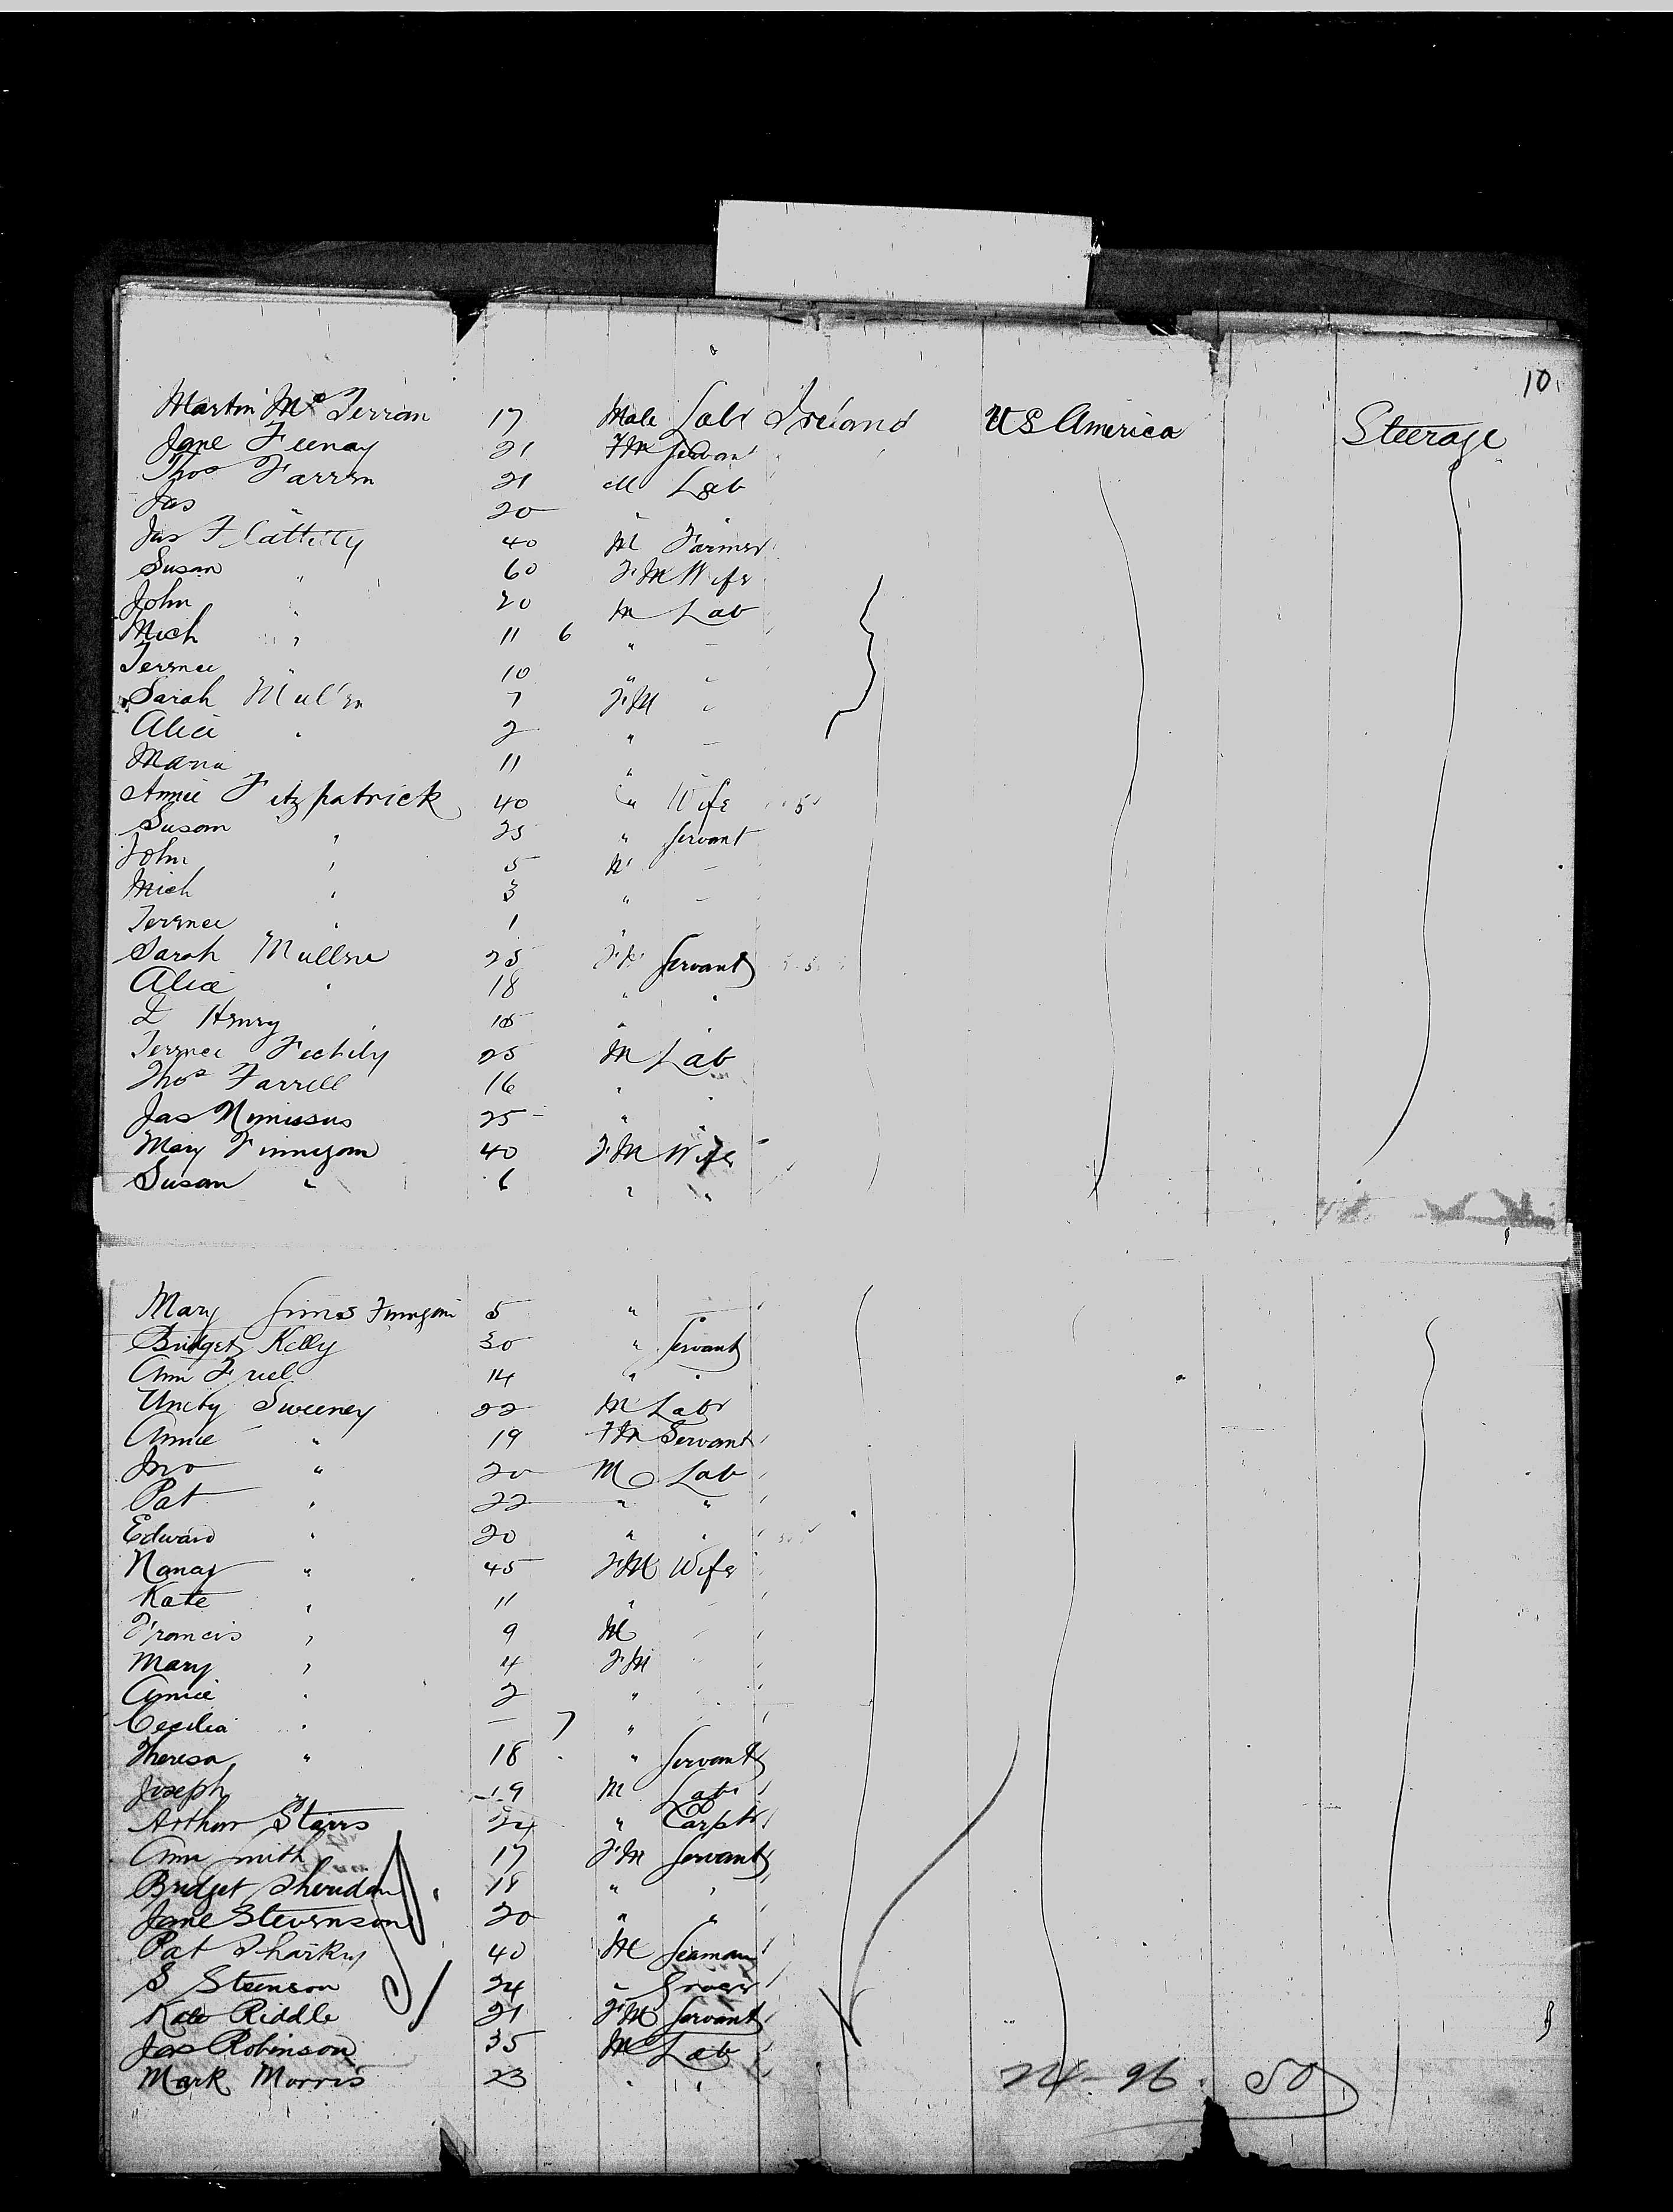 10
Martin Mc Ferran 17 Male Labr Ireland US America Steerage
Jane Feenay 21 FM Servan
Thos Farren 21 M Lab
Jas " 20 " "
Jas Flattilly 40 M Farmer
Susan " 60 FM Wife
John " 20 M Lab
Mich " 11 6 " -
Terrnce " 10 " "
Sarah Mullen 7 FM "
Alice " 2 " -
Maria 11 "
Annie Fitzpatrick 40 " Wife
Susan " 25 " Servant
John " 5 M -
Mich " 3 " -
Terrnce " 1 "
Sarah Mullen 25 FM Servant
Alice " 18 " "
Henry "
Terrnce 25 M Lab
Thos Farrell 16 " "
Jas 25 " "
Mary Finnegan 40 FM Wife
Susan " 6 " "
Mary Finnegan 5 " -
Bridget Kelly 30 " Servant
Ann Friel 14 " "
Unity Sweeney 22 M Labr
Annie " 19 FM Servant
Jno " 20 M Lab
Pat " 22 " "
Edward " 20 " "
Nancy " 45 FM Wife
Kate " 11 "
Francis " 9 M
Mary " 4 FM
Annie " 2 "
Cecilia " - 7 "
Theresa " 18 " Servant
Joseph " 19 M Labr
Arthur Stairs 24 " Carptr
Ann Smith 17 FM Servant
Bridget Sheridan 18 " "
Jane Stevenson 20 " "
Pat Sharkey 40 M Seaman
S Steenson 24 " Grocer
Kate Riddle 21 FM Servant
Jas Robinson 35 M Lab
Mark Morris 23 " "
24-26. 50